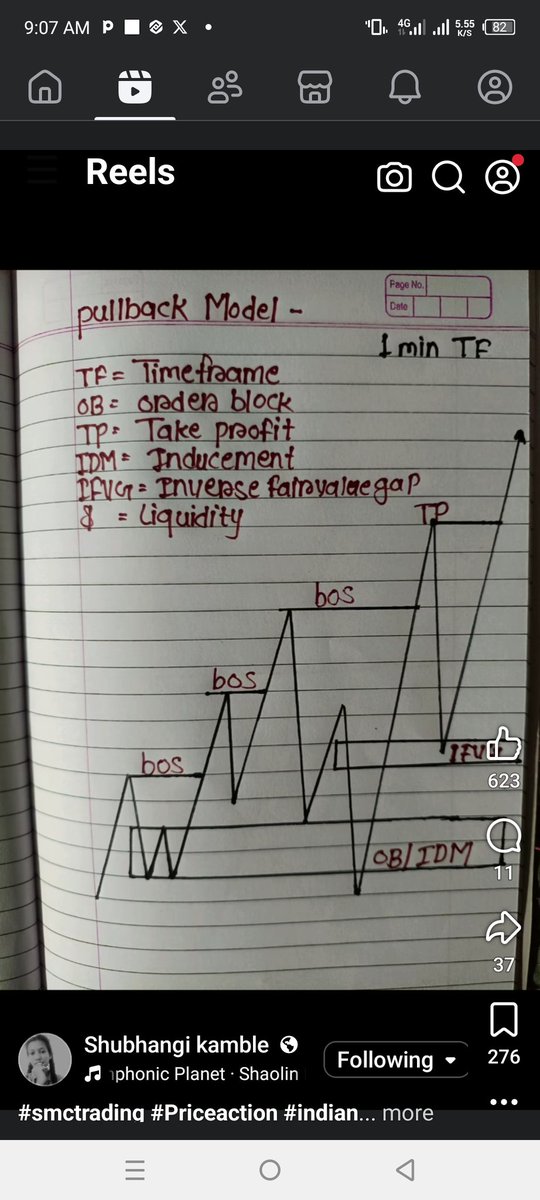 9:07 AM
4G
5.55 K/S
82
Reels
Page No.
Date
pullback Model -
1 min TF
TF = Timeframe
OB = order block
TP = Take profit
IDM = Inducement
IFVG = Inverse fairvaluegap
$ = Liquidity
TP
bos
bos
bos
IFV
623
OB/IDM
11
37
Shubhangi kamble
Following
phonic Planet · Shaolin
276
#smctrading #Priceaction #indian... more